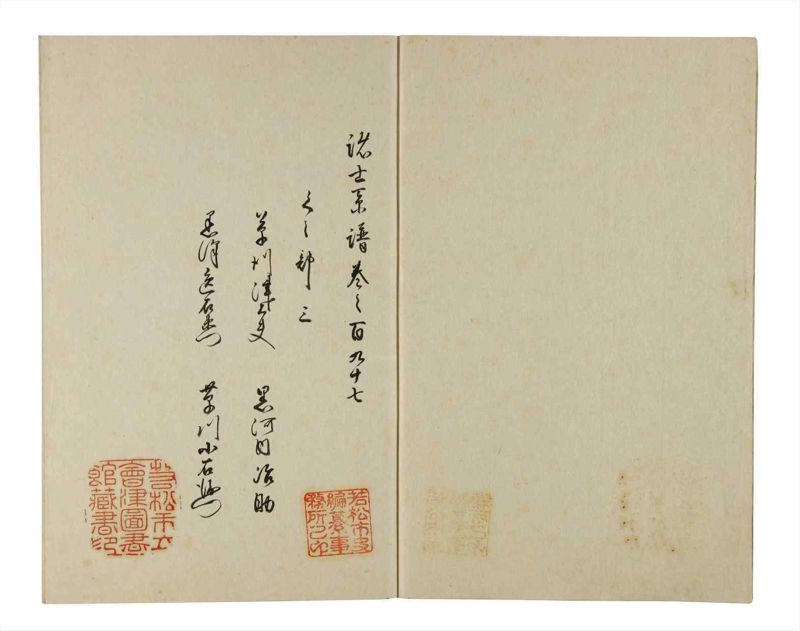 諸士系譜巻之百九十七
く之部 三
草刈 黒河内治助
黒 右衛門 草川小右衛門
若松市史
編纂事
務所之印
若松市立
會津圖書
館藏書印